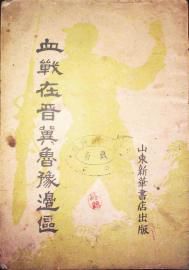 血戰在晉冀魯豫邊區
山東新華書店出版